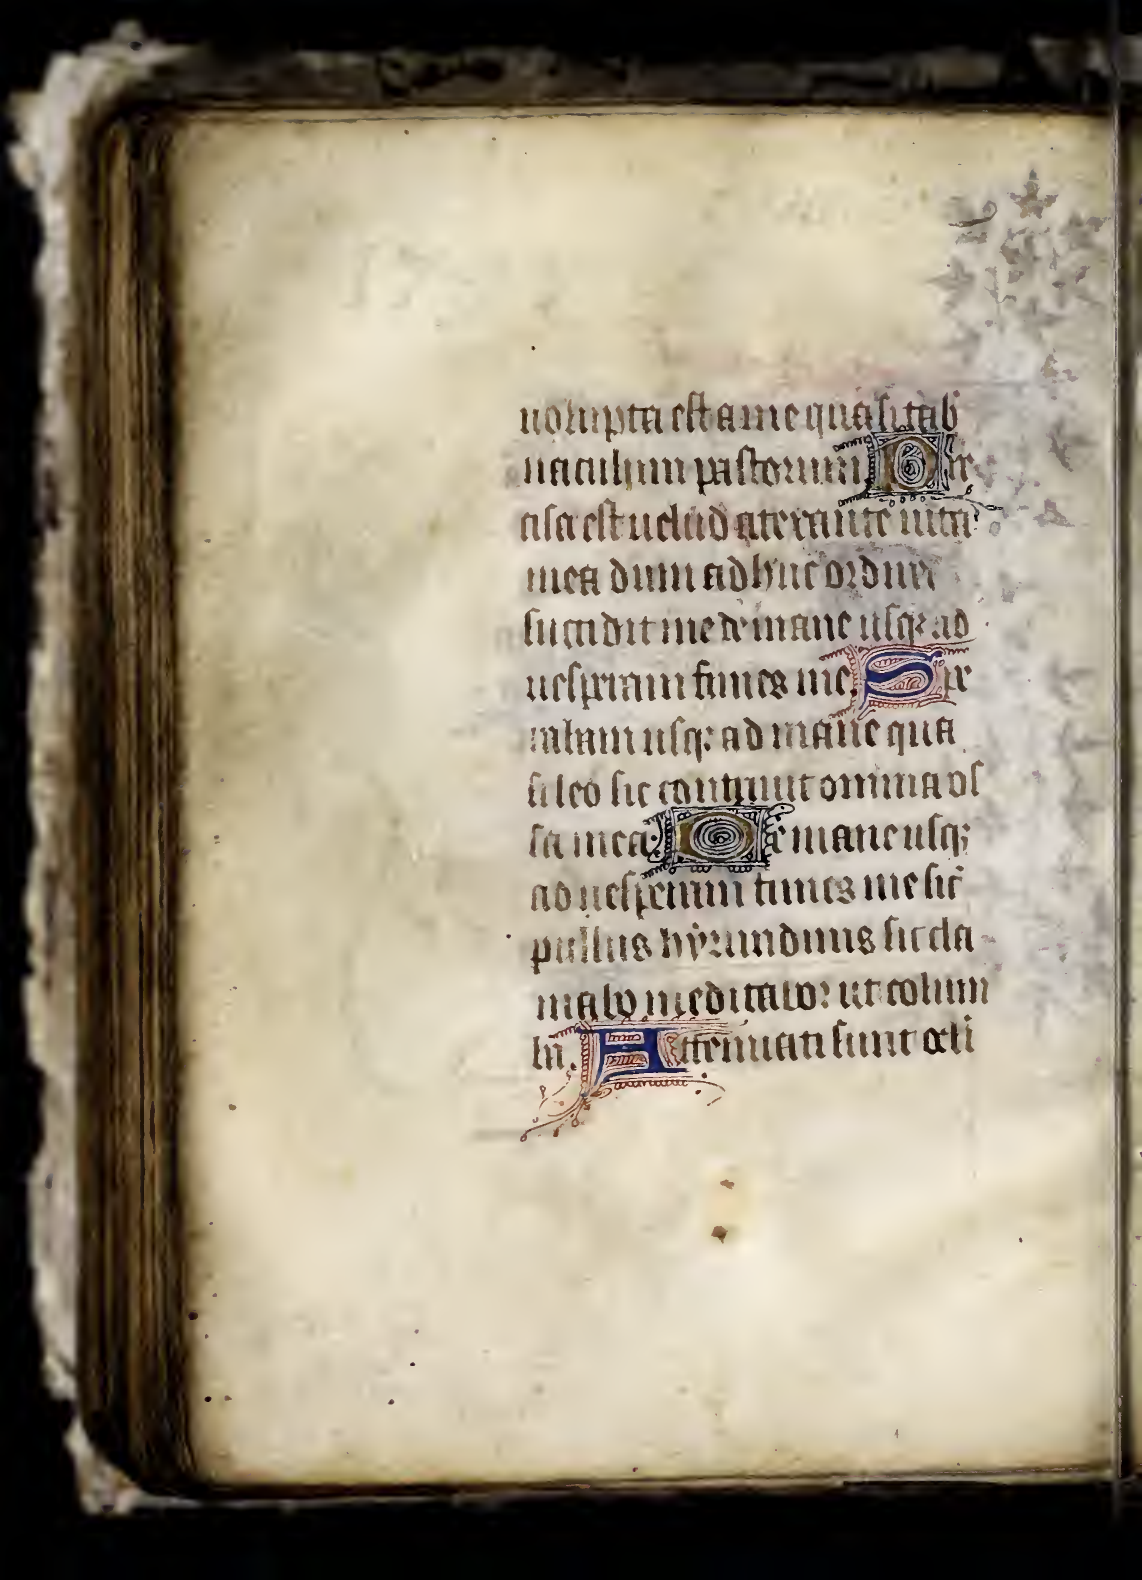 uolupta est a me quasi tab
naculum pastorum. Pre
cisa est uelud a texente uita
mea dum adhuc ordirer
succidit me de mane usq; ad
uesperam finies me. Spe
rabam usq; ad mane qua
si leo sic contriuit omnia os
sa mea. De mane usq;
ad uesperam finies me sic̄
pullus hyrundinis sic cla
mabo meditabor ut colum
ba. Attenuati sunt oculi